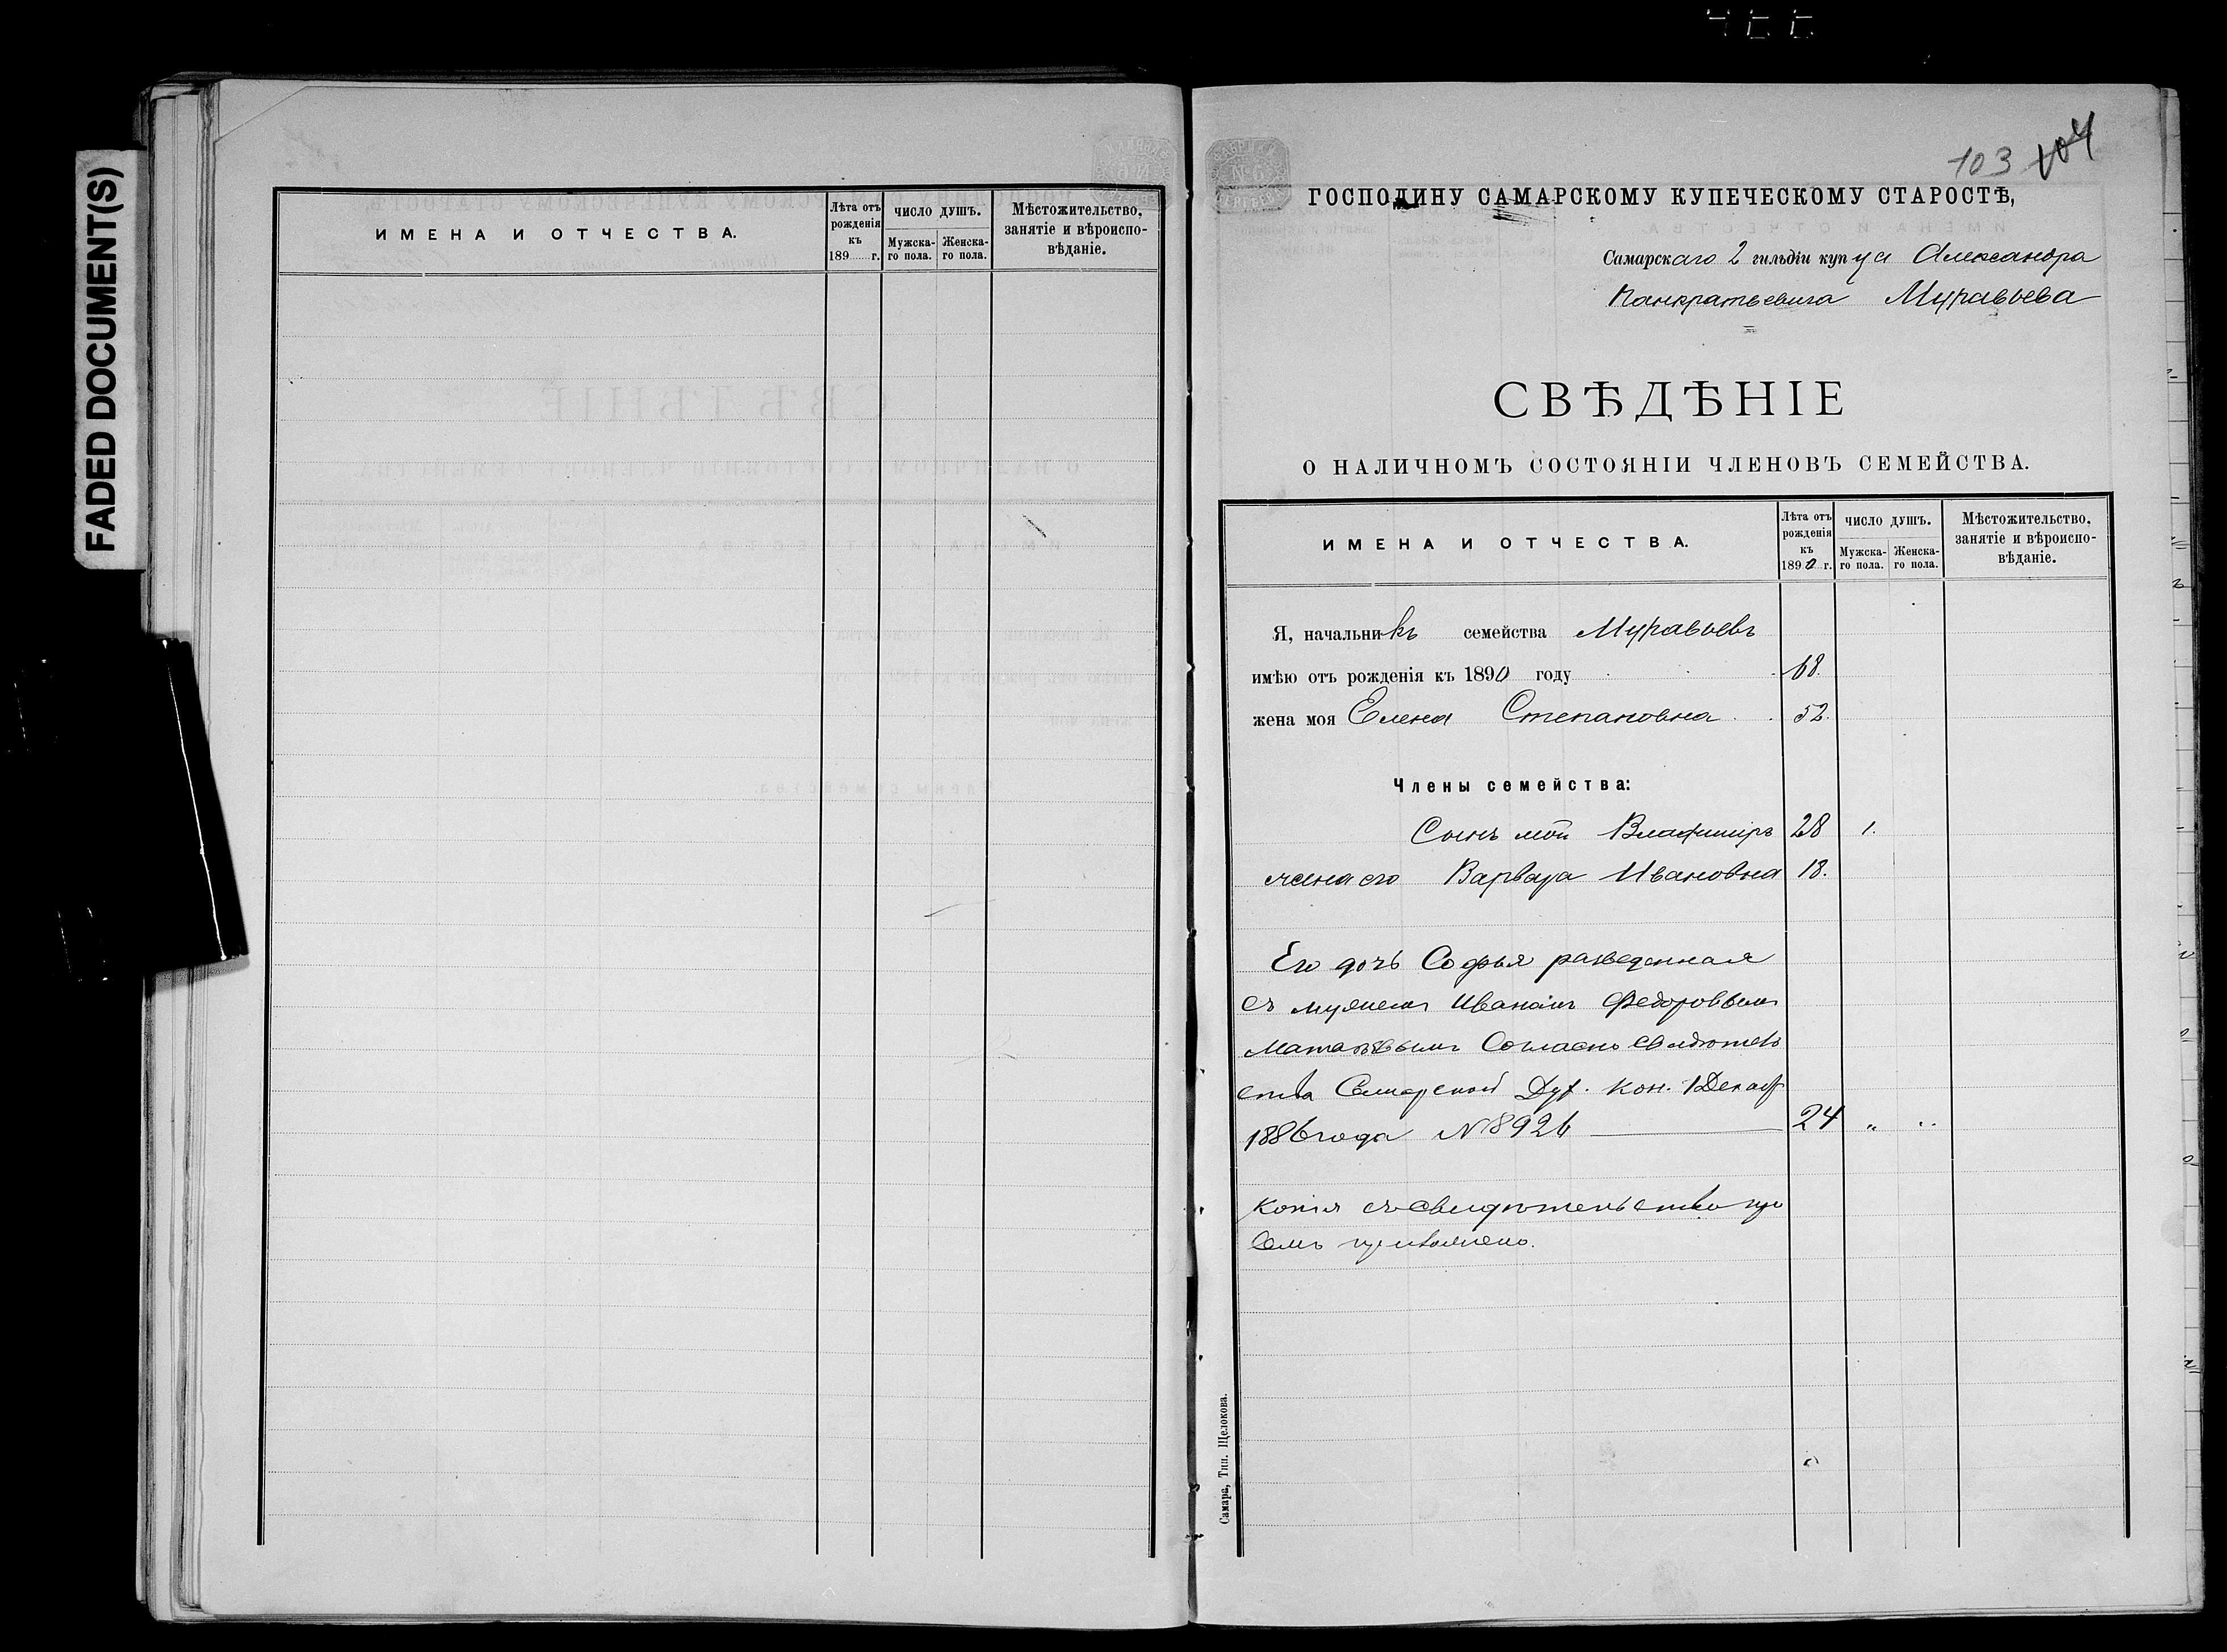 FADED DOCUMENT(S)
ИМЕНА И ОТЧЕСТВА.
Лѣта отъ рожденія къ 189 г.
ЧИСЛО ДУШЪ.
Мужска-го пола.
Женска-го пола.
Мѣстожительство, занятіе и вѣроиспо-вѣданіе.
103 104
ГОСПОДИНУ САМАРСКОМУ КУПЕЧЕСКОМУ СТАРОСТѢ,
Самарскаго 2 гильдіи купца Александра
Панкратьевича Муравьева
СВѢДѢНІЕ
О НАЛИЧНОМЪ СОСТОЯНІИ ЧЛЕНОВЪ СЕМЕЙСТВА.
ИМЕНА И ОТЧЕСТВА.
Лѣта отъ рожденія къ 1890 г.
ЧИСЛО ДУШЪ.
Мужска-го пола.
Женска-го пола.
Мѣстожительство, занятіе и вѣроиспо-вѣданіе.
Я, начальникъ семейства Муравьевъ
имѣю отъ рожденія къ 1890 году 68.
жена моя Елена Степановна 52.
Члены семейства:
Сынъ мой Владиміръ 28 1.
жена его Варвара Ивановна 18.
Его дочь Софья разведенная
съ мужемъ Иваномъ Федоровымъ
Согласно свидѣтель
ства Самарской Дух. Кон. 1 Декаб
1886 года N 8926 24 " "
Копія съ свидѣтельства при
семъ приложено.
Самара, Тип. Щелокова.